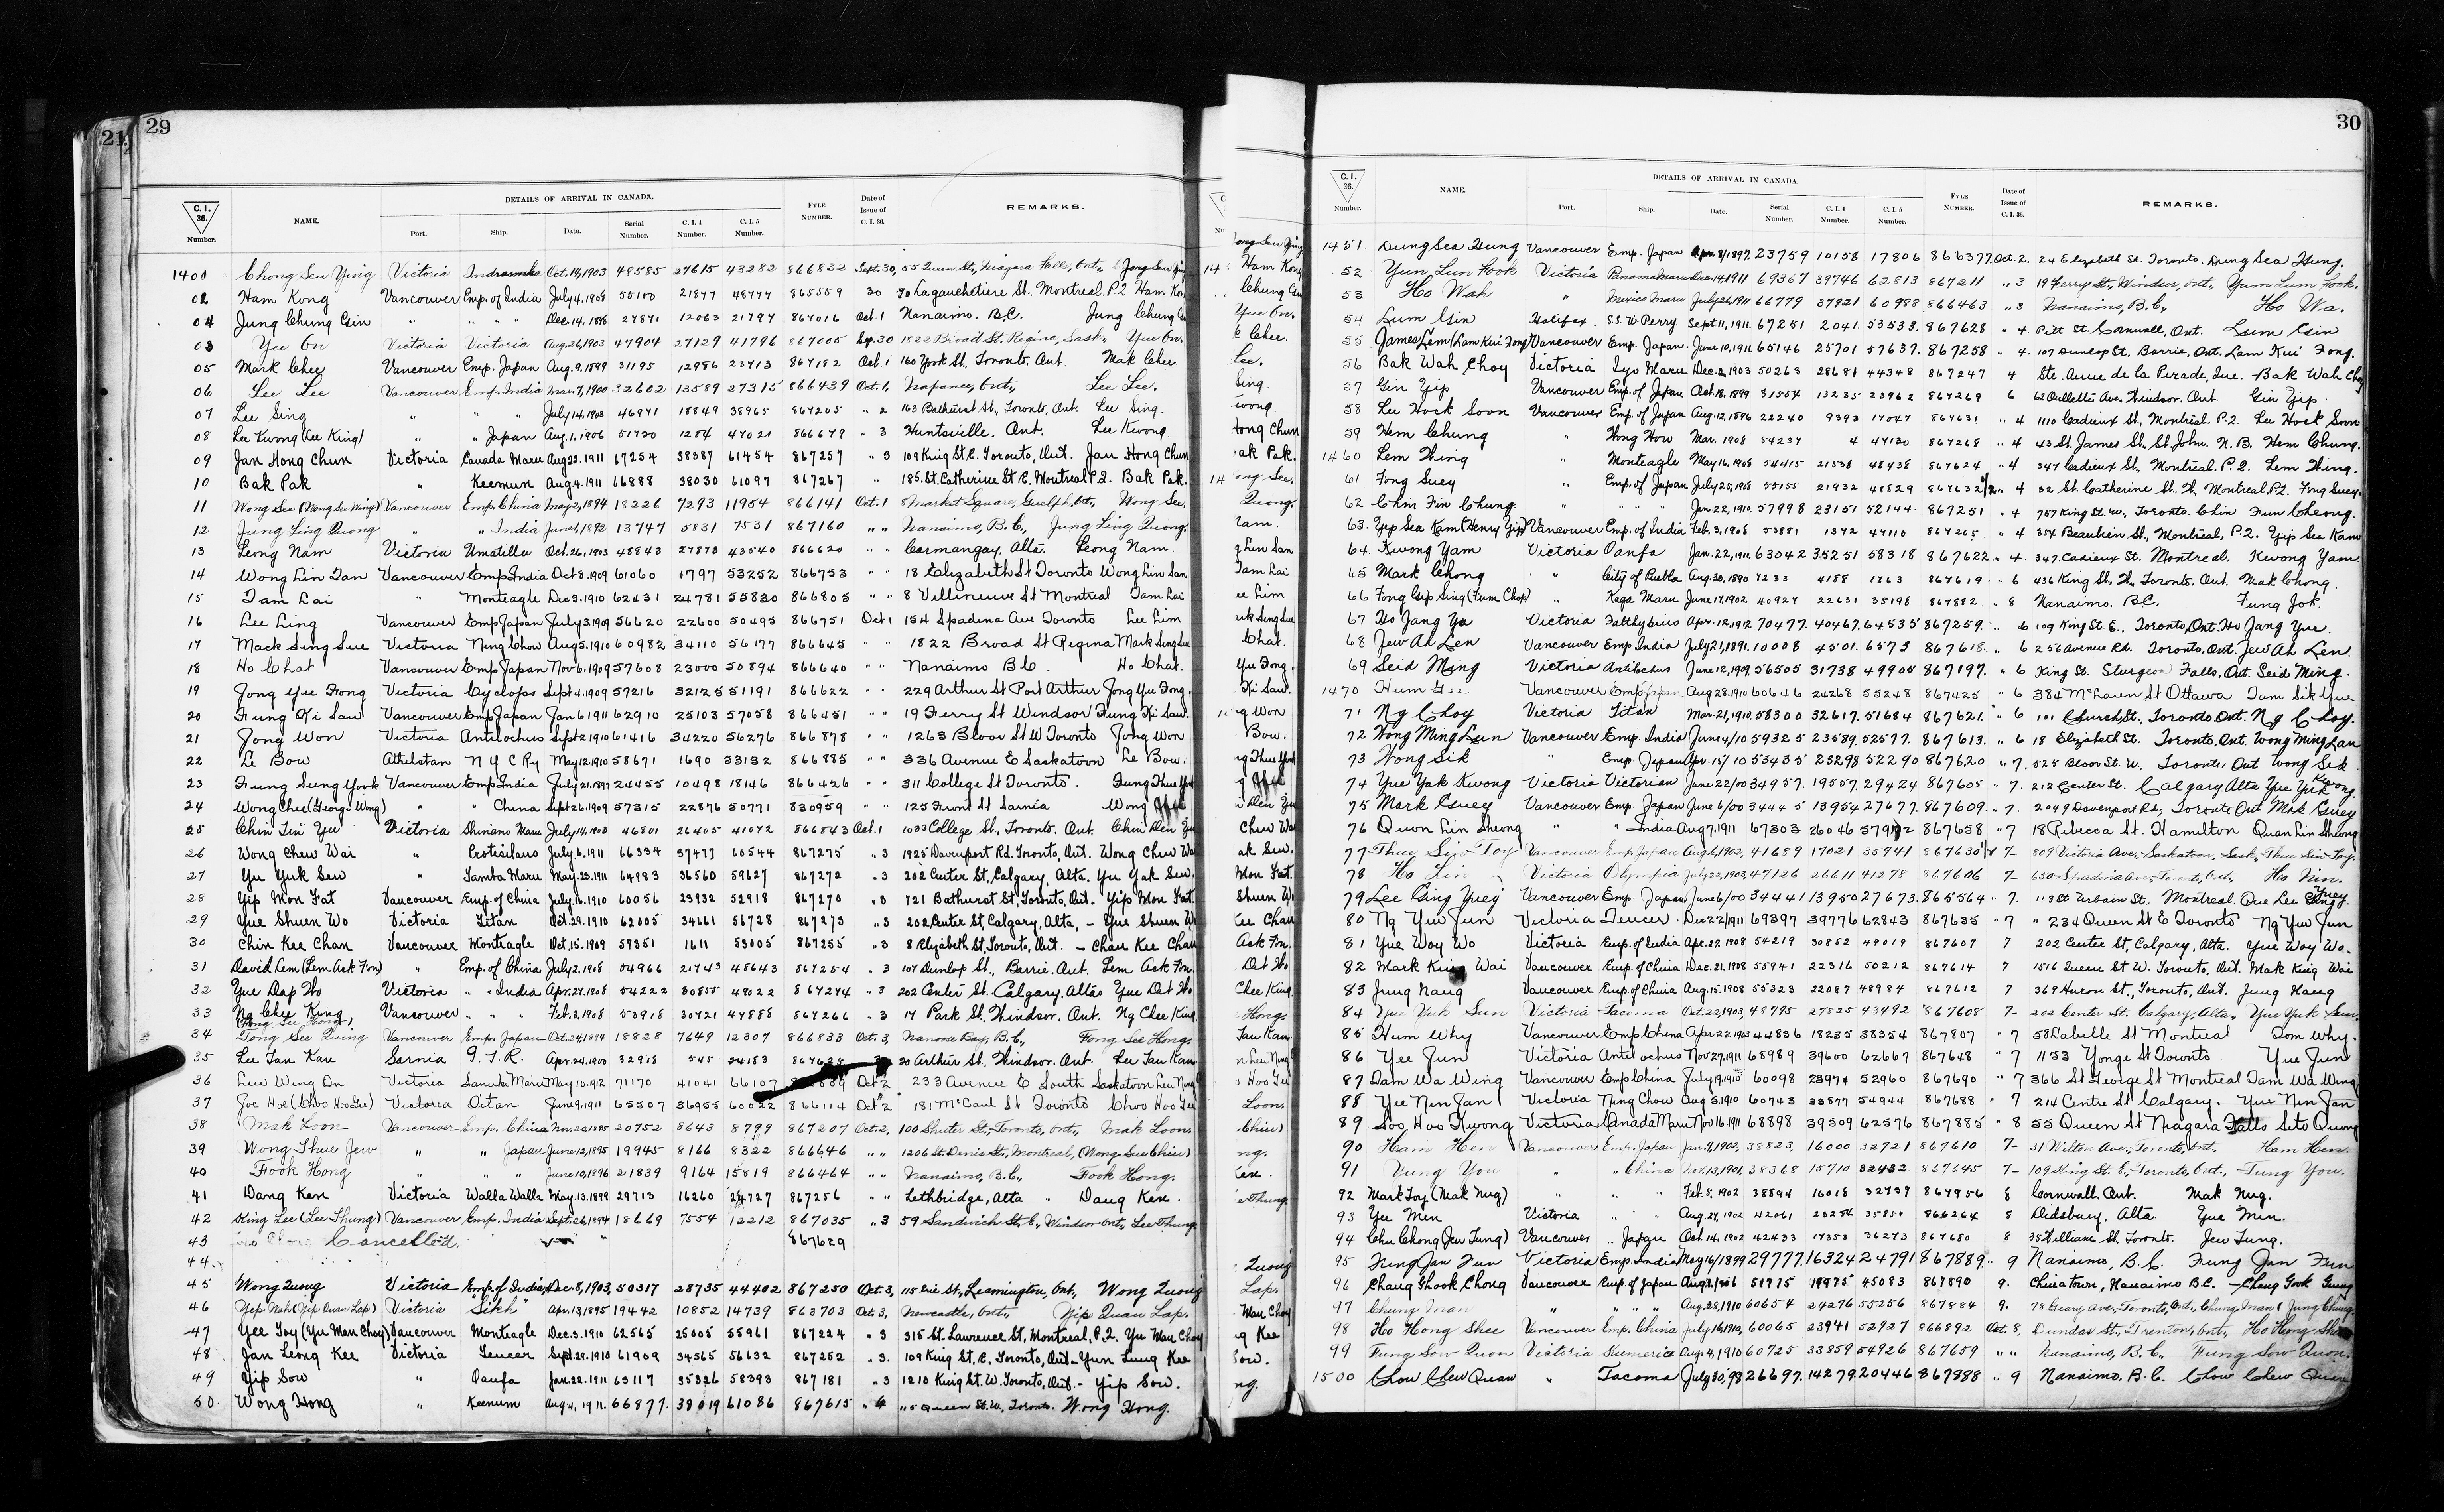 21
29
C. I. 36. Number.
NAME.
DETAILS OF ARRIVAL IN CANADA.
Port. Ship. Date. Serial Number. C. I. 4 Number. C. I. 5 Number.
FYLE NUMBER.
Date of Issue of C. I. 36.
REMARKS.
1401 Chong Seu Ying Victoria Oct. 14, 1903 48585 27615 43282 866832 Sept. 30, 55 Queen St., Niagara Falls, Ont.,
02 Ham Kong Vancouver Emp. of India July 4, 1908 55100 21877 48777 865559 30 70 Lagauchetiere St. Montreal. P.Q. Ham Kon
04 Jung Chung Gin " " " " Dec. 14, 1898 27871 12063 21797 867016 Oct. 1 Nanaimo. B.C. Jung Chung
03 Yee On Victoria Victoria Aug. 26, 1903 47904 27129 41796 867005 Sep. 30 1822 Broad St. Regina, Sask., Yue On.
05 Mark Chee Vancouver Emp. Japan Aug. 9, 1899 31195 12986 23713 867182 Oct. 1 160 York St. Toronto. Ont. Mak Chee.
06 Lee Lee Vancouver Emp. India Mar. 7, 1900 32602 13589 27315 866439 Oct. 1, Napanee, Ont., Lee Lee.
07 Lee Sing " " " July 14, 1903 46971 18849 38965 867205 " 2 163 Bathurst St., Toronto, Ont. Lee Sing.
08 Lee Kwong (Lee King) " " Japan Aug. 1, 1906 51730 1284 47021 866679 " 3 Huntsville. Ont. Lee Kwong.
09 Jan Hong Chun Victoria Canada Maru Aug. 22. 1911 67254 38387 61454 867257 " 3 109 King St. E. Toronto, Ont. Jan Hong Chun
10 Bak Pak " Keemun Aug. 4. 1911 66888 38030 61097 867267 " 185. St. Catherine St E. Montreal P.Q. Bak Pak.
11 Wong See (Wong See King) Vancouver Emp. China May 2, 1894 18226 7293 11954 866141 Oct. 1 8 Market Square, Guelph, Ont., Wong See.
12 Jung Ling Quong " " India June 1, 1892 13747 5831 7531 867160 " " Nanaimo, B.C., Jung Ling Quong.
13 Leong Nam Victoria Umatilla Oct. 26, 1903 48843 27873 43540 866620 " " Carmangay. Alta. Leong Nam.
14 Wong Lin Tan Vancouver Emp India Oct 8. 1909 61060 1797 53252 866753 " " 18 Elizabeth St Toronto Wong Lin San
15 Tam Lai " Monteagle Dec 3. 1910 62431 24781 55830 866805 " " 8 Villeneuve St Montreal Tam Lai
16 Lee Ling Vancouver Emp Japan July 3. 1909 56620 22600 50495 866751 Oct 1 154 Spadina Ave Toronto Lee Lim
17 Mack Sing Sue Victoria Ning Chow Aug 5. 1910 60982 34110 56177 866645 " " 1822 Broad St Regina Mark Sing Sue
18 Ho Chat Vancouver Emp Japan Nov 6. 1909 57608 23000 50894 866640 " " Nanaimo B.C. Ho Chat.
19 Jong Yee Fong Victoria Cyclops Sept 4. 1909 57216 32125 51191 866622 " " 229 Arthur St Port Arthur Jong Yee Fong.
20 Fung Ki Sau Vancouver Emp Japan Jan 6 1911 62910 25103 57058 866451 " " 19 Ferry St Windsor Fung Ki Sau.
21 Jong Won Victoria Antilochus Sept 2 1910 61416 34220 56276 866878 " " 1263 Bloor St W Toronto Jong Won
22 Le Bow Athelstan N Y C Ry May 12. 1910 58671 1690 53132 866885 " " 336 Avenue E Saskatoon Le Bow.
23 Fung Sung Yook Vancouver Emp India July 21. 1897 24455 10498 18146 866426 " " 311 College St Toronto.
24 Wong Chee (George Wong) " " China Sept 26. 1909 57315 22876 50771 830959 " " 125 Front St Sarnia Wong
25 Chin Tin Yee Victoria Shinano Maru July 14. 1903 46801 26405 41072 866843 Oct. 1 1033 College St., Toronto. Ont. Chin Den
26 Wong Chew Wai " Protesilaus July. 6. 1911 66334 37477 60544 867275 " 3 1925 Davenport Rd. Toronto, Ont. Wong Chew Wa
27 Yu Yuk Sew " Tamba Maru May. 23. 1911 64983 36560 59627 867272 " 3 202 Center St, Calgary, Alta. Yu Yak Seu.
28 Yip Mon Fat Vancouver Emp. of China July. 16. 1910 60056 23932 52918 867270 " 3 721 Bathurst St, Toronto, Ont. Yip Mon Fat.
29 Yue Shuen Wo Victoria Titan Oct. 29. 1910 62005 34661 56728 867273 " 3 202, Center St, Calgary, Alta, - Yue Shuen W
30 Chin Kee Chan Vancouver Monteagle Oct. 15. 1909 57351 1611 53005 867255 " 3 8 Elyzabeth St, Toronto, Ont. - Chan Kee Chan
31 David Lem (Lem Ack Fon) " Emp. of China July 2. 1908 54966 21743 48643 867254 " 3 107 Dunlop St., Barrie. Ont. Lem Ack Fon.
32 Yue Dap Wo Victoria " " India Apr. 27. 1908 54222 30855 49022 867274 " 3 202 Center St. Calgary. Alta Yue Dat Wo.
33 Ng Chee King Vancouver " " " Feb. 3, 1908 53918 30721 47888 867266 " 3 17 Park St. Windsor. Ont. Ng Chee King.
34 Fong See Quing (Fong See Hong) Vancouver Emp. Japan Oct. 24, 1894 18828 7649 12307 866833 Oct. 3, Nanoose Bay, B.C., Fong See Hong.
35 Lee Tan Kau Sarnia G. T. R. Apr. 24. 1900 32918 545 24183 Arthur St. Windsor. Ont Lee Tau Kam
36 Lew Wing On Victoria Sanuki Maru May 10. 1912 71170 41041 66107 Oct 2 233 Avenue E South Saskatoon
37 Joe Hoe (Choo Hoo Gee) Victoria Titan June 9. 1911 65507 36955 60022 866114 Oct 2 181 McCaul St Toronto Choo Hoo Gee
38 Mak Loon Vancouver Emp. China Nov. 20, 1895 20752 8643 8799 867207 Oct. 2, 100 Shuter St., Toronto, Ont., Mak Loon.
39 Wong Thue Jew " " Japan June 12, 1895 19945 8166 8322 866646 " " 1206 St. Denis St., Montreal, (Wong Sew Chiew)
40 Fook Hong " " " June 10, 1896 21839 9164 15819 866464 " " Nanaimo, B.C., Fook Hong.
41 Dang Ken Victoria Walla Walla May. 13. 1899 29713 16260 24727 867256 " " Lethbridge, Alta " Dang Ken.
42 King Lee (Lee Thung) Vancouver Emp. India Sept. 26, 1894 18669 7554 12212 867035 " 3 59 Sandwich St. E., Windsor Ont., Lee Thung.
43 Cancelled. 867629
44
45 Wong Quong Victoria Emp. of India Dec. 8, 1903 50317 28735 44402 867250 Oct. 3, 115 Erie St, Leamington, Ont, Wong Quong
46 Yep Nah (Yip Quan Lap) Victoria "Sikh" Apr. 13, 1895 19442 10852 14739 863703 Oct. 3, Newcastle, Ont., Yip Quan Lap.
47 Yee Toy (Yu Man Choy) Vancouver Monteagle Dec. 3. 1910 62565 25005 55961 867224 " 3 315 St. Lawrence St, Montreal, P.Q. Yu Man Choy
48 Jan Leong Kee Victoria Teucer Sept. 29. 1910 61909 34565 56632 867252 " 3. 109 King St. E. Toronto, Ont. - Yun Lung Kee
49 Yip Sow " Oanfa Jan. 22. 1911 63117 35326 58393 867181 " 3 1210 King St. W. Toronto, Ont. - Yip Sow.
50. Wong Hong " Keemun Aug. 4, 1911. 66877. 38019 61086 867615 " 6 115 Queen St. W., Toronto. Wong Hong.
30
C. I. 36. Number.
NAME.
DETAILS OF ARRIVAL IN CANADA.
Port. Ship. Date. Serial Number. C. I. 4 Number. C. I. 5 Number.
FYLE NUMBER.
Date of Issue of C. I. 36.
REMARKS.
1451 Dung Sea Hung Vancouver Emp. Japan Apr. 8/1897. 23759 10158 17806 866377. Oct. 2. 24 Elizabeth St. Toronto. Dung Sea Hung.
52 Yun Lun Fook Victoria Panama Maru Dec. 14, 1911 69367 39746 62813 867211 " 3 19 Ferry St, Windsor, Ont., Yum Lum Fook.
53 Ho Wah " Mexico Maru July 26, 1911 66779 37921 60988 866463 " 3 Nanaimo, B.C., Ho Wa.
54 Lum Gin Halifax. S.S. W Perry Sept 11, 1911. 67251 2041. 53533. 867628 " 4. Pitt St. Cornwall, Ont. Lum Gin
55 James Lem (Lam Kui Fong) Vancouver Emp. Japan. June 10, 1911 65146 25701 57637. 867258 " 4. 107 Dunlop St., Barrie, Ont. Lam Kui Fong.
56 Bak Wah Choy Victoria Iyo Maru Dec. 2, 1903 50263 28681 44348 867247 4 Ste. Anne de la Perade, Que. Bak Wah Choy
57 Gin Yip Vancouver Emp. of Japan Oct. 18, 1899 31554 13235 23962 867269 6 62 Ouellette Ave. Windsor. Ont Gin Yip.
58 Lee Hock Soon Vancouver Emp. of Japan Aug. 12, 1896 22240 9393 17047 867631 " 4 1110 Cadieux St., Montreal. P.Q. Lee Hock Soon
59 Hem Chung " Hong How Mar. 1908 54237 4 47130 867268 " 4 43 St. James St., St. John. N.B. Hem Chung.
1460 Lem Wing " Monteagle May 16, 1908 54415 21538 48438 867624 " 4 347 Cadieux St., Montreal. P.Q. Lem Wing.
61 Fong Suey " Emp. of Japan July 25, 1908 55155 21932 48829 867632 1/2 " 4 32 St. Catherine St. W. Montreal. P.Q. Fong Suey.
62 Chin Fin Chung " " " " Jan. 22, 1910 57998 23151 52144. 867251 " 4 767 King St. W., Toronto. Chin Fun Cheong.
63. Yip Sea Kem (Henry Yip) Vancouver Emp. of India Feb. 3, 1908 53881 1372 47110 867265 " 4 354 Beaubien St., Montreal, P.Q. Yip Sea Kam
64. Kwong Yam Victoria Oanfa Jan. 22, 1911. 63042 35251 58318 867622 " 4. 347 Cadieux St. Montreal. Kwong Yam.
65 Mark Chong " City of Puebla Aug. 30, 1890 7233 4188 1763 867619. " 6 436 King St. W. Toronto. Ont. Mak Chong.
66 Fong Gip Sing (Fum Chop) " Kaga Maru June 17, 1902 40927 22631 35198 867882. " 8 Nanaimo. B.C. Fung Jok.
67 Ho Jang Ya Victoria Talthybius Apr. 12, 1912 70477. 40467. 64535 867259. " 6 109 King St. E., Toronto, Ont. Ho Jang Yue.
68 Jew Ah Len Vancouver Emp India July 21, 1891. 10008 4501. 6573 867618. " 6 256 Avenue Rd. Toronto, Ont. Jew Ah Len.
69 Seid Ming Victoria Antilochus June 12, 1909 56505 31738 49905 867197. " 6 King St. Sturgeon Falls, Ont. Seid Ming.
1470 Hum Gee Vancouver Emp Japan Aug 28. 1910 60646 24268 55248 867425 " 6 384 McLaren St Ottawa Tam Sik Yue
71 Ng Choy Victoria Titan Mar. 21, 1910. 58300 32617. 51684 867621. " 6 101 Church St., Toronto Ont. Ng Choy.
72 Wong Ming Lun Vancouver Emp. India June 4/10 59325 23589. 52577. 867613. " 6 18 Elizabeth St. Toronto. Ont. Wong Ming Lan
73 Wong Sik " Emp. Japan Apr. 15/10 53435 23298 52290 867620 " 7. 525 Bloor St. W. Toronto, Ont Wong Sik
74 Yue Yak Kwong Victoria Victorian Jan. 22/00 34957. 19557. 29424 867605 " 7. 212 Center St. Calgary Alta Yue Yik Kwong.
75 Mark Guey Vancouver Emp. Japan June 6/00 34445 13954 27677. 867609. " 7. 2049 Davenport Rd., Toronto Ont Mak Guey
76 Quon Lin Sheong " " India Aug 7, 1911 67303 26046 57972 867658 " 7 18 Rebecca St. Hamilton Quan Lin Sheong
77 Thue Siw Toy Vancouver Emp. Japan Aug. 6, 1902, 41689 17021 35941 867630 1/2 7 - 809 Victoria Ave., Saskatoon, Sask., Thue Siw Toy.
78 Ho Victoria Olympia July 22, 1903 47126 26611 41278 867606 7 - 650 Spadina Ave., Toronto, Ont., Ho
79 Lee King Yuey Vancouver Emp. Japan June 6/00 34441 13950 27673. 865564 " 7. 113 St Urbain St. Montreal. Que Lee King Yuey.
80 Ng Yuw Jun Victoria Teucer. Dec 22/1911 69397 39776 62843 867635 " 7 " 234 Queen St E Toronto Ng Yuw Jun
81 Yue Woy Wo Victoria Emp. of India Apr. 27. 1908 54219 30852 49019 867607 7 202 Center St, Calgary, Alta. Yue Woy Wo.
82 Mark King Wai Vancouver Emp. of China Dec. 21. 1908 55941 22316 50212 867614 7 1516 Queen St W. Toronto, Ont. Mak King Wai
83 Jung Nang Vancouver Emp. of China Aug. 15. 1908 55323 22087 48984 867612 7 369 Huron St., Toronto, Ont. Jung Nang
84 Yue Yuk Sun Victoria Tacoma Oct. 22, 1903, 48795 27825 43492 867608 7 - 202 Center St. Calgary, Alta., Yue Yuk Sun.
85 Hum Why Vancouver Emp China Apr 22 1903 44836 18235 38354 867807 " 7 58 Labelle St Montreal Tom Why.
86 Yee Jun Victoria Antilochus Nov 27. 1911 68989 39600 62667 867648 " 7 1153 Yonge St Toronto Yue Jun
87 Tam Wa Wing Vancouver Emp China July 9. 1910 60098 23974 52960 867690 " 7 366 St George St Montreal Tam Wa Wing
88 Yee Nin Jan Victoria Ning Chow Aug 5. 1910 60743 33877 54944 867688 " 7 214 Centre St Calgary. Yue Nin Jan
89 Soo Hoo Kwong Victoria Canada Maru Nov 16 1911 68898 39509 62576 867885 " 8 55 Queen St Niagara Falls Sito Quong
90 Ham Hen Vancouver Emp. Japan Jan. 9, 1902, 38823, 16000 32721 867610 7 - 31 Wilton Ave., Toronto, Ont., Ham Hen.
91 Yung You " " China Nov. 13, 1901, 38368 15710 32432 867645 7 - 109 King St. E., Toronto, Ont., Tung You.
92 Mark Toy (Mak Nug) " " " Feb. 5, 1902 38894 16018 32739 867956 8 Cornwall. Ont. Mak Nug.
93 Yee Men Victoria " " Aug. 27, 1902 42061 23284 35850 866264 8 Didsbury. Alta. Yue Min.
94 Chu Chong (Jew Tung) Vancouver " Japan Oct. 14, 1902 42433 17353 36273 867680 8 35 William St. Toronto. Jew Tung.
95 Fung Jan Fun Victoria Emp. India May 16/1899 29777. 16324 24791 867889. " 9 Nanaimo, B.C. Fung Jan Fun
96 Chang Ghook Chong Vancouver Emp. of Japan 51975 19975 45083 867890 9. Chinatown, Nanaimo B.C. - Chang Gook Gung
97 Chung Man " " " " Aug. 28, 1910 60654 24276 55256 867884 9. 78 Geary Ave., Toronto, Ont., Chung Man (Jung Chung.
98 Ho Hong Shee Vancouver Emp. China July 16, 1910, 60065 23941 52927 866892 Oct. 8, Dundas St., Trenton, Ont., Ho Hong
99 Fung Sow Quon Victoria Sumeric Aug. 4, 1910 60725 33859 54926 867659 " " Nanaimo, B.C., Fung Sow Quon.
1500 Chow Chew Quan " Tacoma July 30, 98 26697. 14279 20446 867888 " 9 Nanaimo, B.C. Chow Chew Quan